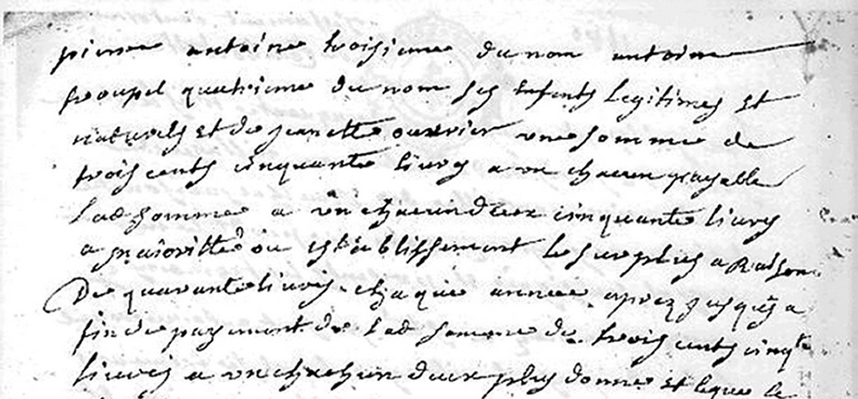 pierre antoine troisieme du nom antoine
troupel quatrieme du nom ses Enfents Legitimes Et
naturels Et de jeanette ouvrier une somme de
trois cents cinquante livres a un chacun payable
Lad somme a un chacun d'eux cinquante livres
a majoritté ou establissement le surplus a Raison
De quarante livres chaque année aprez jusques a
fin de payement de Lad somme de trois cents cinqte
livres a un chachun d'eux plus donne Et legue le